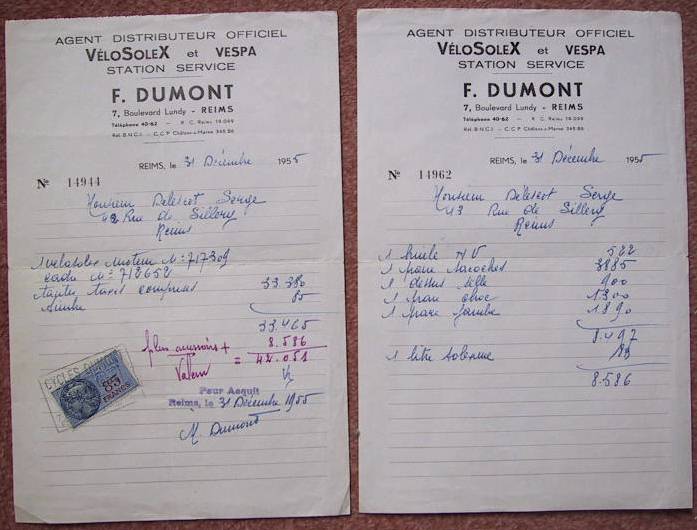 AGENT DISTRIBUTEUR OFFICIEL
VÉLOSOLEX et VESPA
STATION SERVICE
F. DUMONT
7, Boulevard Lundy - REIMS
Téléphone 40-62 - R. C. Reims 19.049
Rél. B.N.C.I. - C.C.P. Châlons-s-Marne 345.86
REIMS, le 31 Décembre 1955
No 14944
Monsieur Delescot Serge
42 Rue de Sillery
Reims
1 velosolex moteur No: 717309
cadre No: 712652
toutes taxes comprises 33.380
timbre 85
33.465
plus accessoires + 8.586
Valeur = 42.051
CYCLES DUMONT
85
FRANCS
Pour Acquit
Reims, le 31 Décembre 1955
M. Dumont
AGENT DISTRIBUTEUR OFFICIEL
VÉLOSOLEX et VESPA
STATION SERVICE
F. DUMONT
7, Boulevard Lundy - REIMS
Téléphone 40-62 - R. C. Reims 19.049
Rél. B.N.C.I. - C.C.P. Châlons-s-Marne 345.86
REIMS, le 31 Décembre 1955
No 14962
Monsieur Delescot Serge
43 Rue de Sillery
Reims
1 huile HV 522
1 paire sacoches 3885
1 dessus selle 900
1 pare choc 1300
1 pare jambe 1890
8.497
1 litre solexine 89
8.586